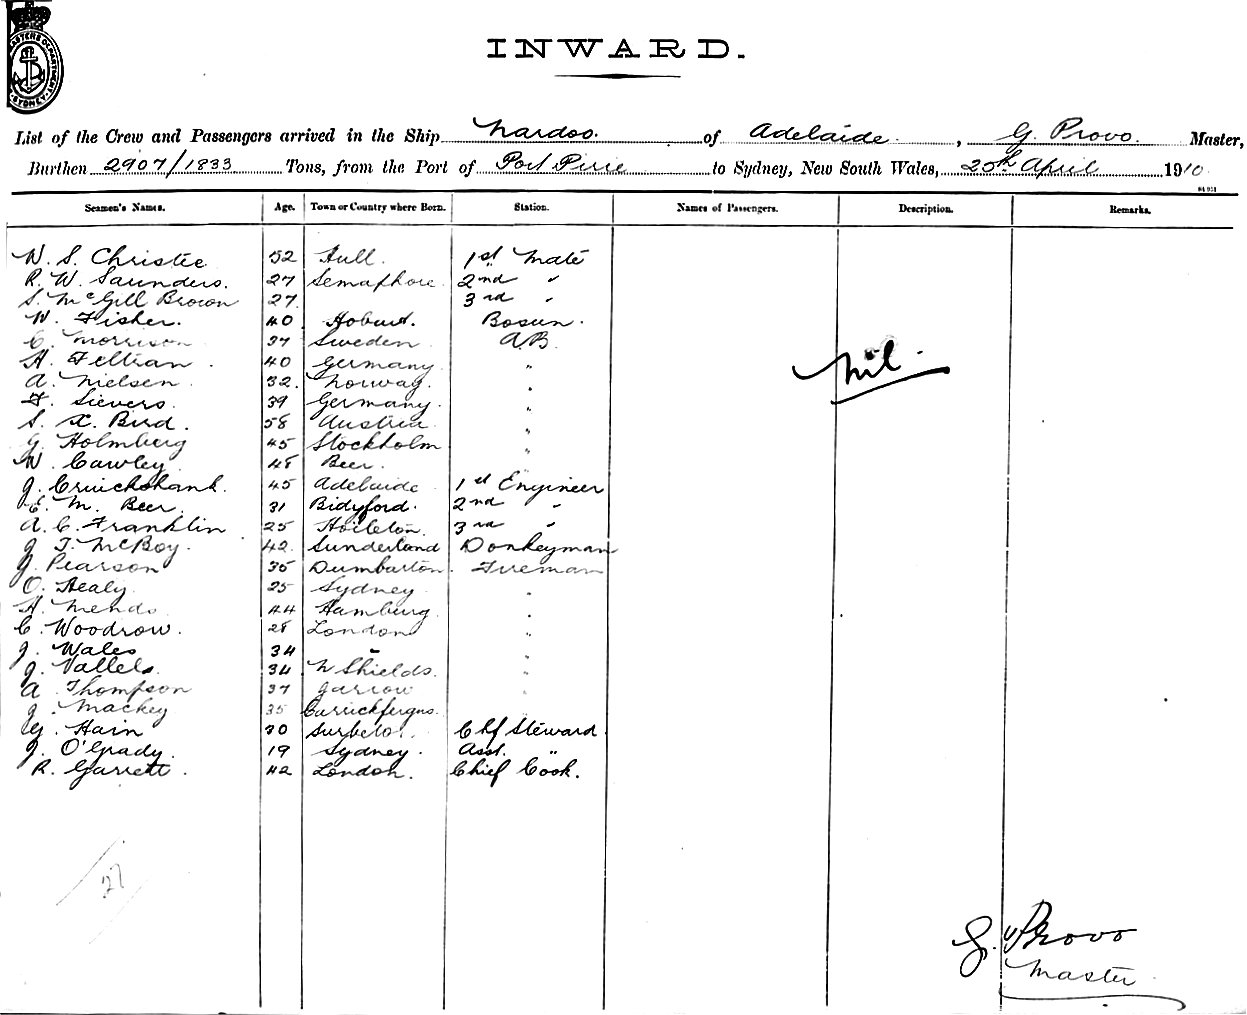 MASTERS DEPARTMENT SYDNEY
INWARD.
List of the Crew and Passengers arrived in the Ship Nardoo. of Adelaide, G Provo. Master,
Burthen 2907/1833 Tons, from the Port of Port Pirie to Sydney, New South Wales, 20th April 1910
Seamen's Names. Age. Town or Country where Born. Station. Names of Passengers. Description. Remarks.
W. S. Christie 52 Hull. 1st Mate
R. W. Saunders. 27 Semaphore 2nd "
S. McGill Brown 27 3rd "
W. Fisher. 40 Hobart. Bosun.
C. Morrison 37 Sweden A.B.
H. Feltian. 40 Germany "
A. Nielsen 32 Norway. "
F. Sievers. 39 Germany. "
S. X. Bird. 58 Austria "
G Holmberg 45 Stockholm "
W Cawley 48 Beer.
J. Cruickshank. 45 Adelaide 1st Engineer
E. M. Beer. 31 Bidyford. 2nd "
A. C. Franklin 25 3rd "
J T. McBoy. 42 Sunderland Donkeyman
J. Pearson 35 Dumbarton. Fireman
O. Healy 25 Sydney "
H. Mends 44 Hamburg "
C. Woodrow. 28 London "
J. Wales 34 "
J. Vallels. 34 N Shields. "
A Thompson 37 Jarrow "
J Mackey 35 Carrickfergus.
G. Hain 30 Surbeto. Chf Steward.
J. O'Grady. 19 Sydney. Asst. "
R. Garrett. 42 London. Chief Cook.
Nil.
27
G. Provo
Master